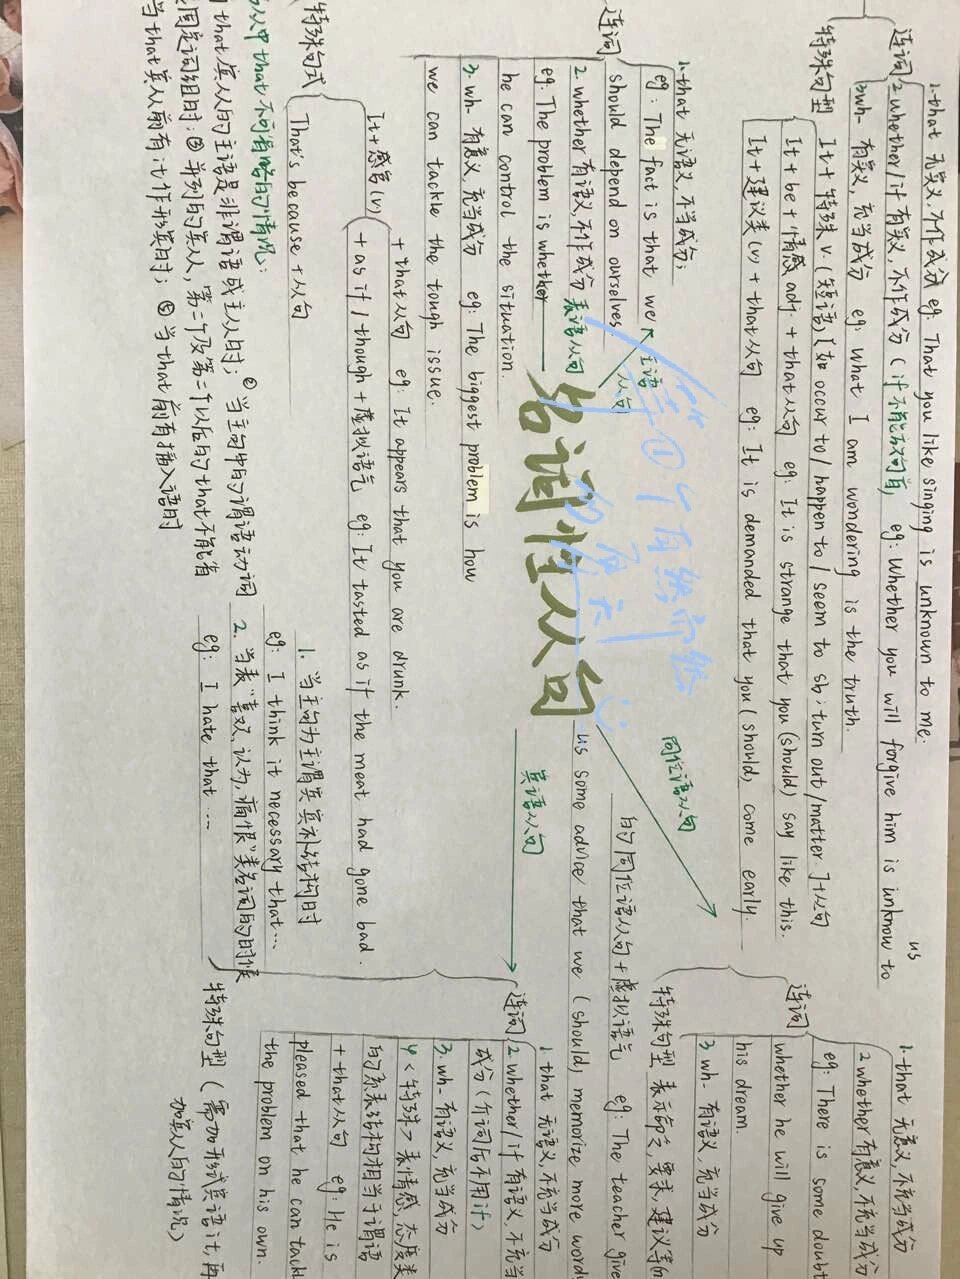 连词
1.that 无意义,不作成分 eg: That you like singing is unknown to me.
2 whether/if 有意义,不作成分 (if不能放句首) eg: Whether you will forgive him is unknow to
us
3 wh- 有意义,充当成分 eg: What I am wondering is the truth.
特殊句型
It+特殊v.(短语)[如 occur to/happen to/seem to sb; turn out/matter]+从句
It+be+情感adj.+that从句 eg: It is strange that you (should) say like this.
It+建议类(v)+that从句 eg: It is demanded that you (should) come early.
主语
从句
连词
1.that 无语义,不当成分;
eg: The fact is that we
should depend on ourselves.
2 whether 有语义,不作成分
eg: The problem is whether
he can control the situation.
3. wh- 有意义,充当成分 eg: The biggest problem is how
we can tackle the tough issue.
表语从句
名词性从句
特殊句式
It+感官(v)
+that从句 eg: It appears that you are drunk.
+as if/though+虚拟语气 eg: It tasted as if the meat had gone bad.
That's because+从句
从中that不可省略的情况:
that宾从的主语是非谓语或主从时; ② 当主句中的谓语动词
固定词组时; ③ 并列的宾从,第二个及第二个以后的that不能省
当that宾从前有it作形宾时; ⑤ 当that前有插入语时
同位语从句
连词
1.that 无意义,不充当成分
2 whether 有意义,不充当成分
eg: There is some doubt
whether he will give up
his dream.
3 wh- 有义,充当成分
特殊句型 表示命令,要求,建议等的
的同位语从句+虚拟语气 eg: The teacher give
us some advice that we (should) memorize more word
宾语从句
连词
1.that 无语义,不充当成分
2 whether/if 有语义,不充当
成分(介词后不用if)
3. wh- 有语义,充当成分
4 <特殊>表情感,态度类
的系表结构相当于谓语
+that从句 eg: He is
pleased that he can tackl
the problem on his own.
特殊句型 (需加形式宾语it,再
加宾从的情况)
1. 当主句为主谓宾宾补结构时
eg: I think it necessary that...
2. 当表“喜好,认为,痛恨”类名词的时候
eg: I hate that...